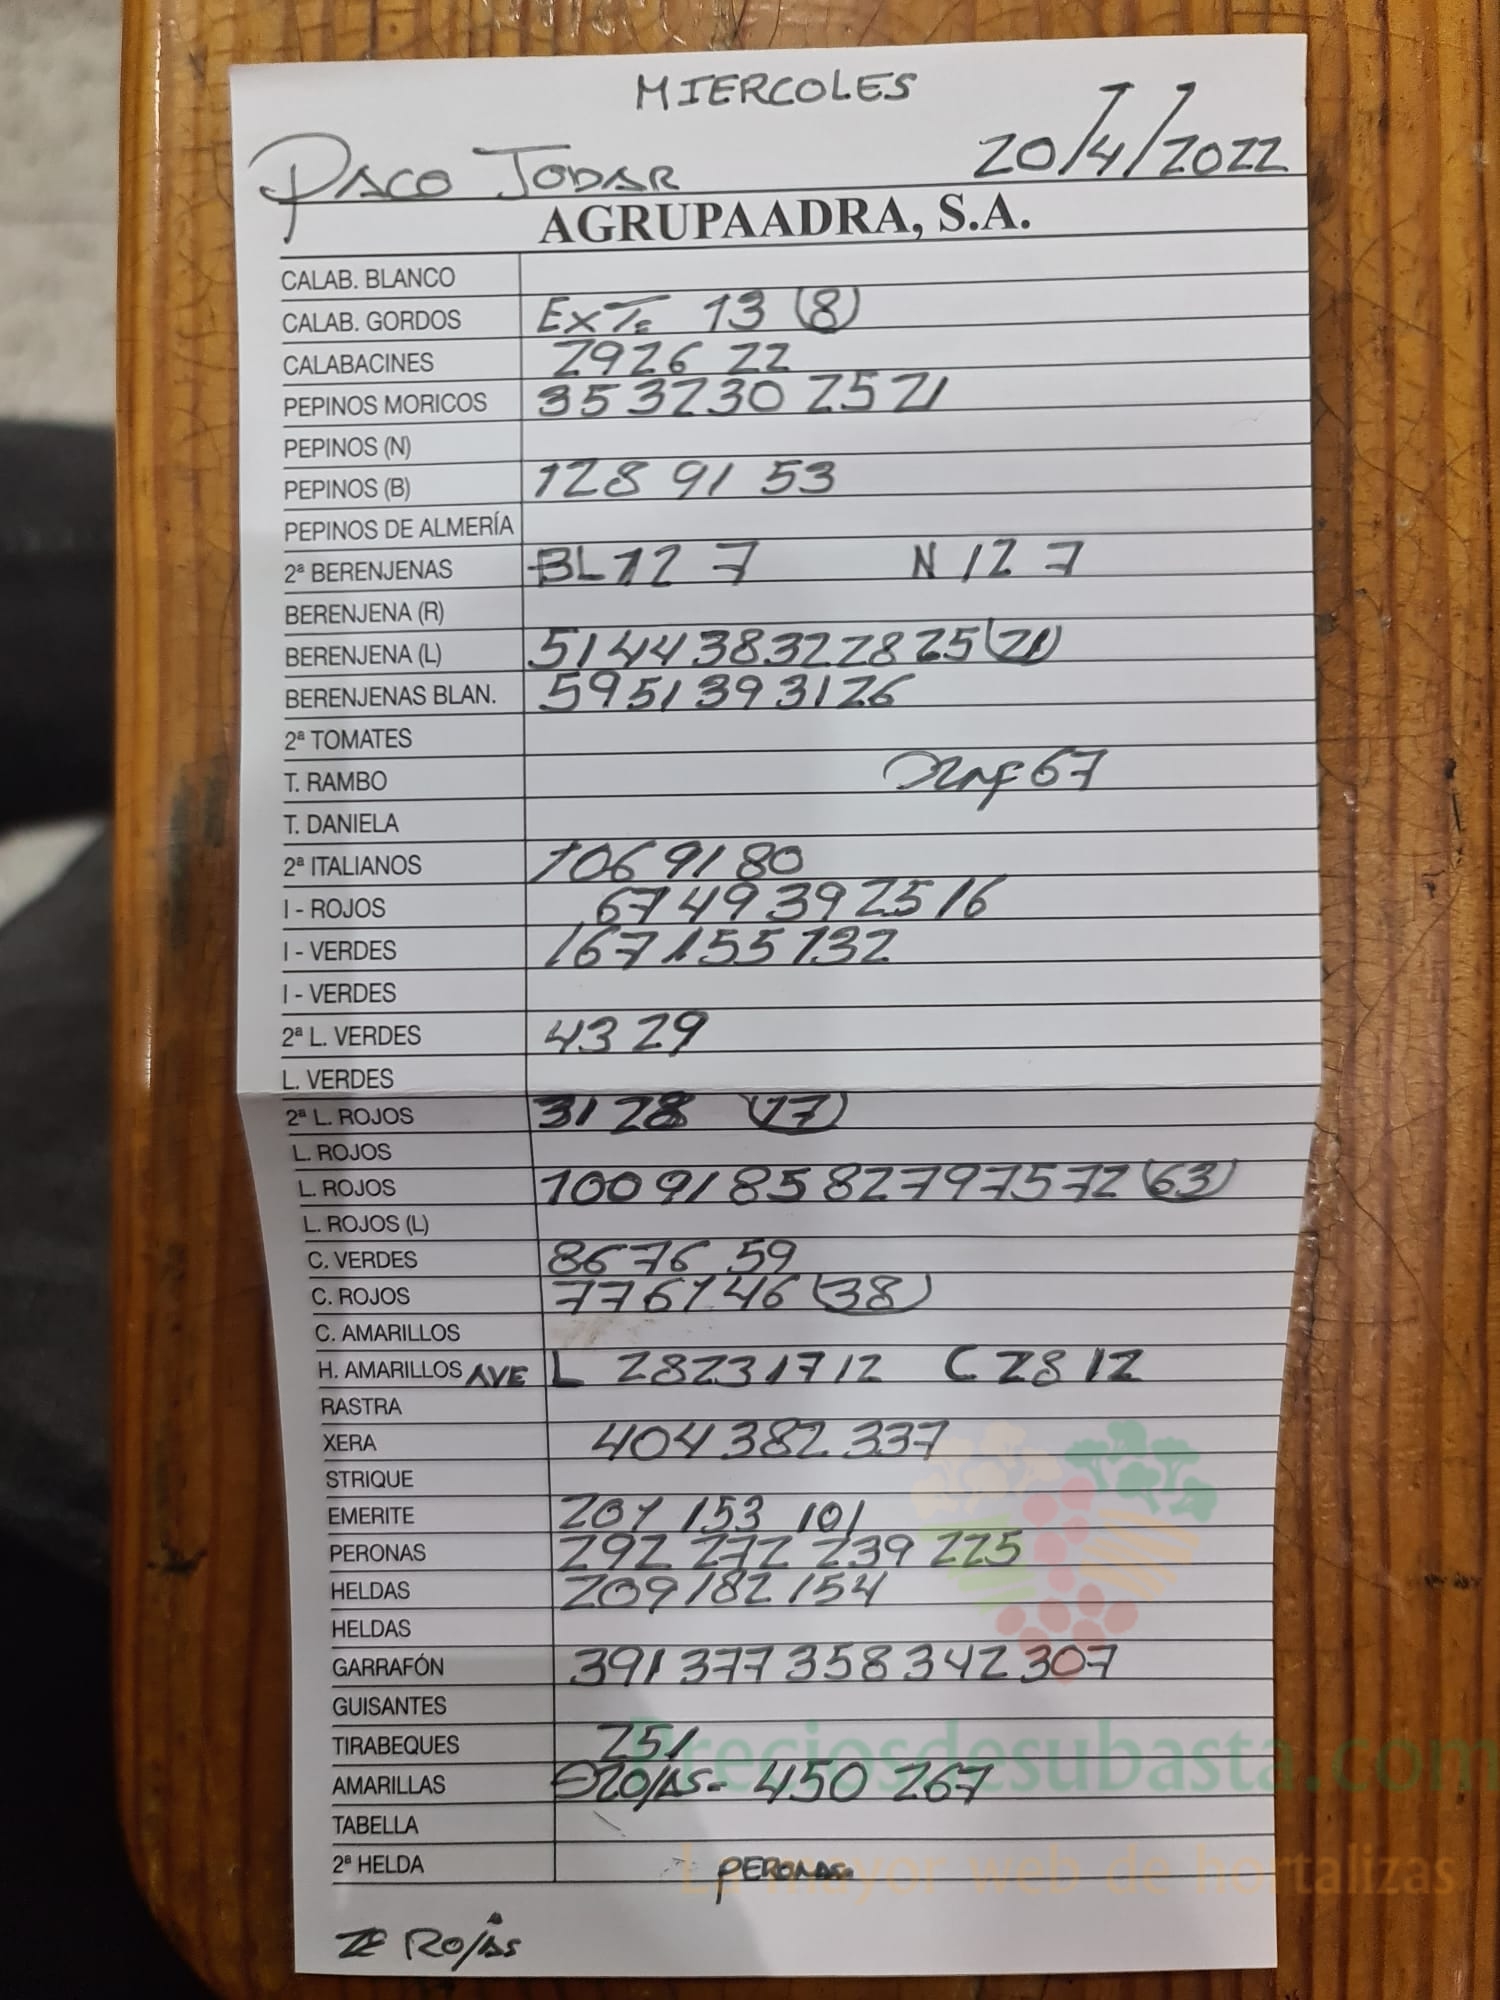 MIERCOLES
PACO JODAR 20/4/2022
AGRUPAADRA, S.A.
CALAB. BLANCO
CALAB. GORDOS EXT. 13 (8)
CALABACINES 29 26 22
PEPINOS MORICOS 35 32 30 25 21
PEPINOS (N)
PEPINOS (B) 128 91 53
PEPINOS DE ALMERÍA
2ª BERENJENAS BL 12 7 N 12 7
BERENJENA (R)
BERENJENA (L) 51 44 38 32 28 25 (21)
BERENJENAS BLAN. 59 51 39 31 26
2ª TOMATES
T. RAMBO 67
T. DANIELA
2ª ITALIANOS 106 91 80
I - ROJOS 67 49 39 25 16
I - VERDES 167 155 132
I - VERDES
2ª L. VERDES 43 29
L. VERDES
2ª L. ROJOS 31 28 (17)
L. ROJOS
L. ROJOS 100 91 85 82 79 75 72 (63)
L. ROJOS (L)
C. VERDES 86 76 59
C. ROJOS 77 61 46 (38)
C. AMARILLOS
H. AMARILLOS AVE L 28 23 17 12 C 28 12
RASTRA
XERA 404 382 337
STRIQUE
EMERITE 201 153 101
PERONAS 292 272 239 225
HELDAS 209 182 154
HELDAS
GARRAFÓN 391 377 358 342 307
GUISANTES
TIRABEQUES 251
Preciosdesubasta.com
AMARILLAS 450 267
TABELLA
2ª HELDA PERONAS
La mayor web de hortalizas
ROJAS